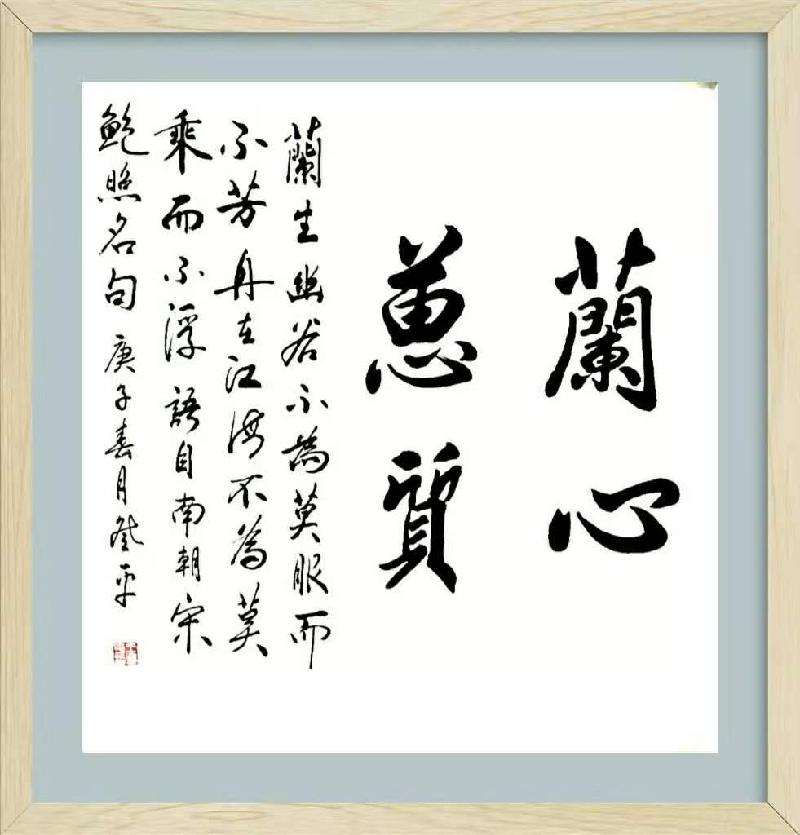 蘭心
蕙質
蘭生幽谷不為莫服而
不芳舟在江海不為莫
乘而不浮語自南朝宋
鮑照名句庚子春月平